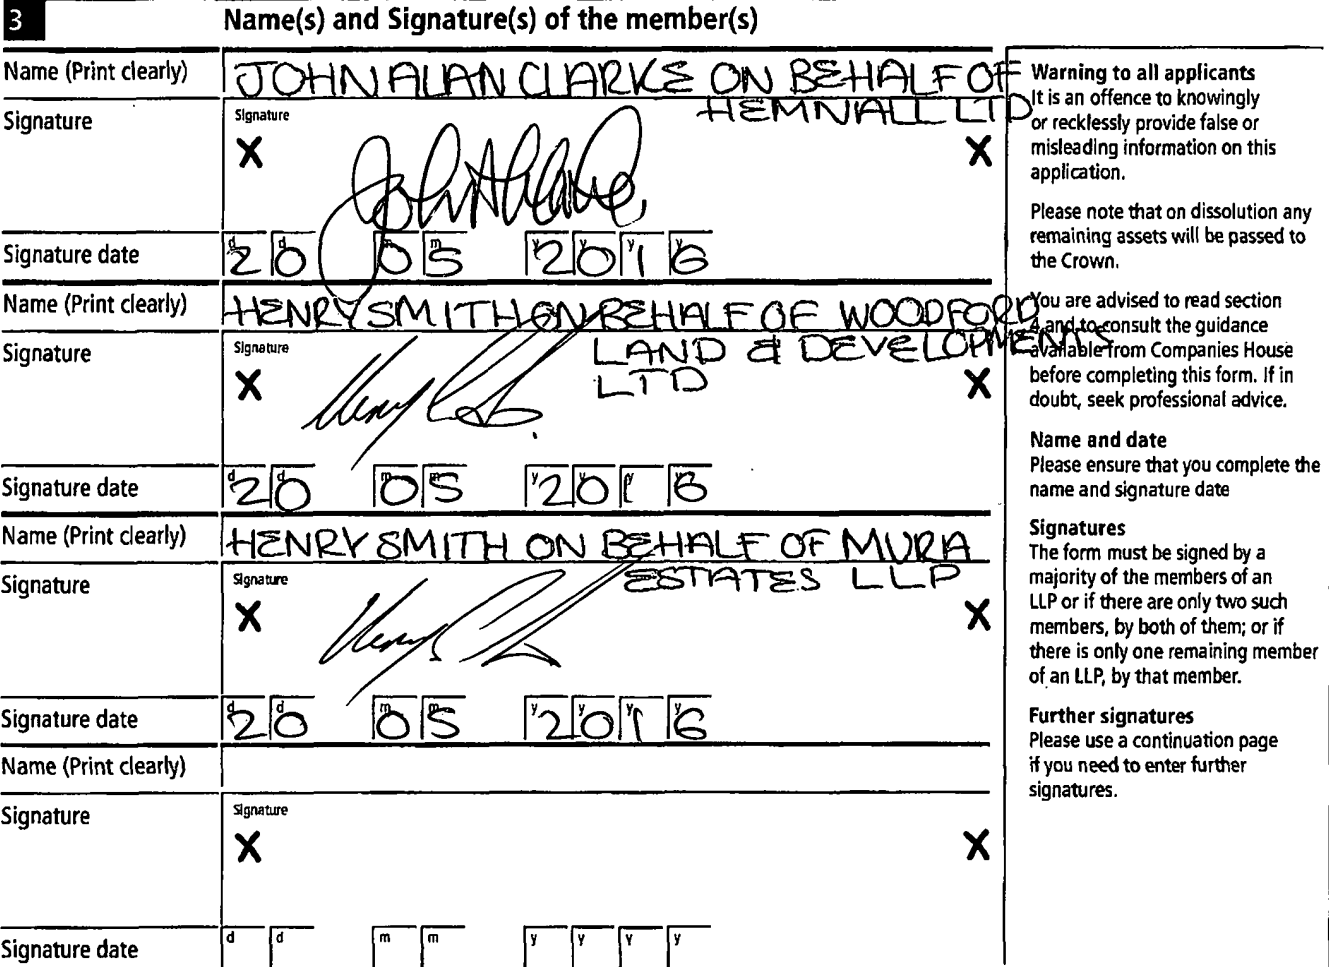 3 Name(s) and Signature(s) of the member(s)
Name (Print clearly) JOHN ALAN CLARKE ON BEHALF OF
HEMNALL LTD
Signature Signature
X X
Signature date d d m m y y y y
20 05 2016
Name (Print clearly) HENRY SMITH ON BEHALF OF WOODFORD
LAND & DEVELOPMENTS
LTD
Signature Signature
X X
Signature date d d m m y y y y
20 05 2016
Name (Print clearly) HENRY SMITH ON BEHALF OF MURA
ESTATES LLP
Signature Signature
X X
Signature date d d m m y y y y
20 05 2016
Name (Print clearly)
Signature Signature
X X
Signature date d d m m y y y y
Warning to all applicants
It is an offence to knowingly
or recklessly provide false or
misleading information on this
application.
Please note that on dissolution any
remaining assets will be passed to
the Crown.
You are advised to read section
4 and to consult the guidance
available from Companies House
before completing this form. If in
doubt, seek professional advice.
Name and date
Please ensure that you complete the
name and signature date
Signatures
The form must be signed by a
majority of the members of an
LLP or if there are only two such
members, by both of them; or if
there is only one remaining member
of an LLP, by that member.
Further signatures
Please use a continuation page
if you need to enter further
signatures.